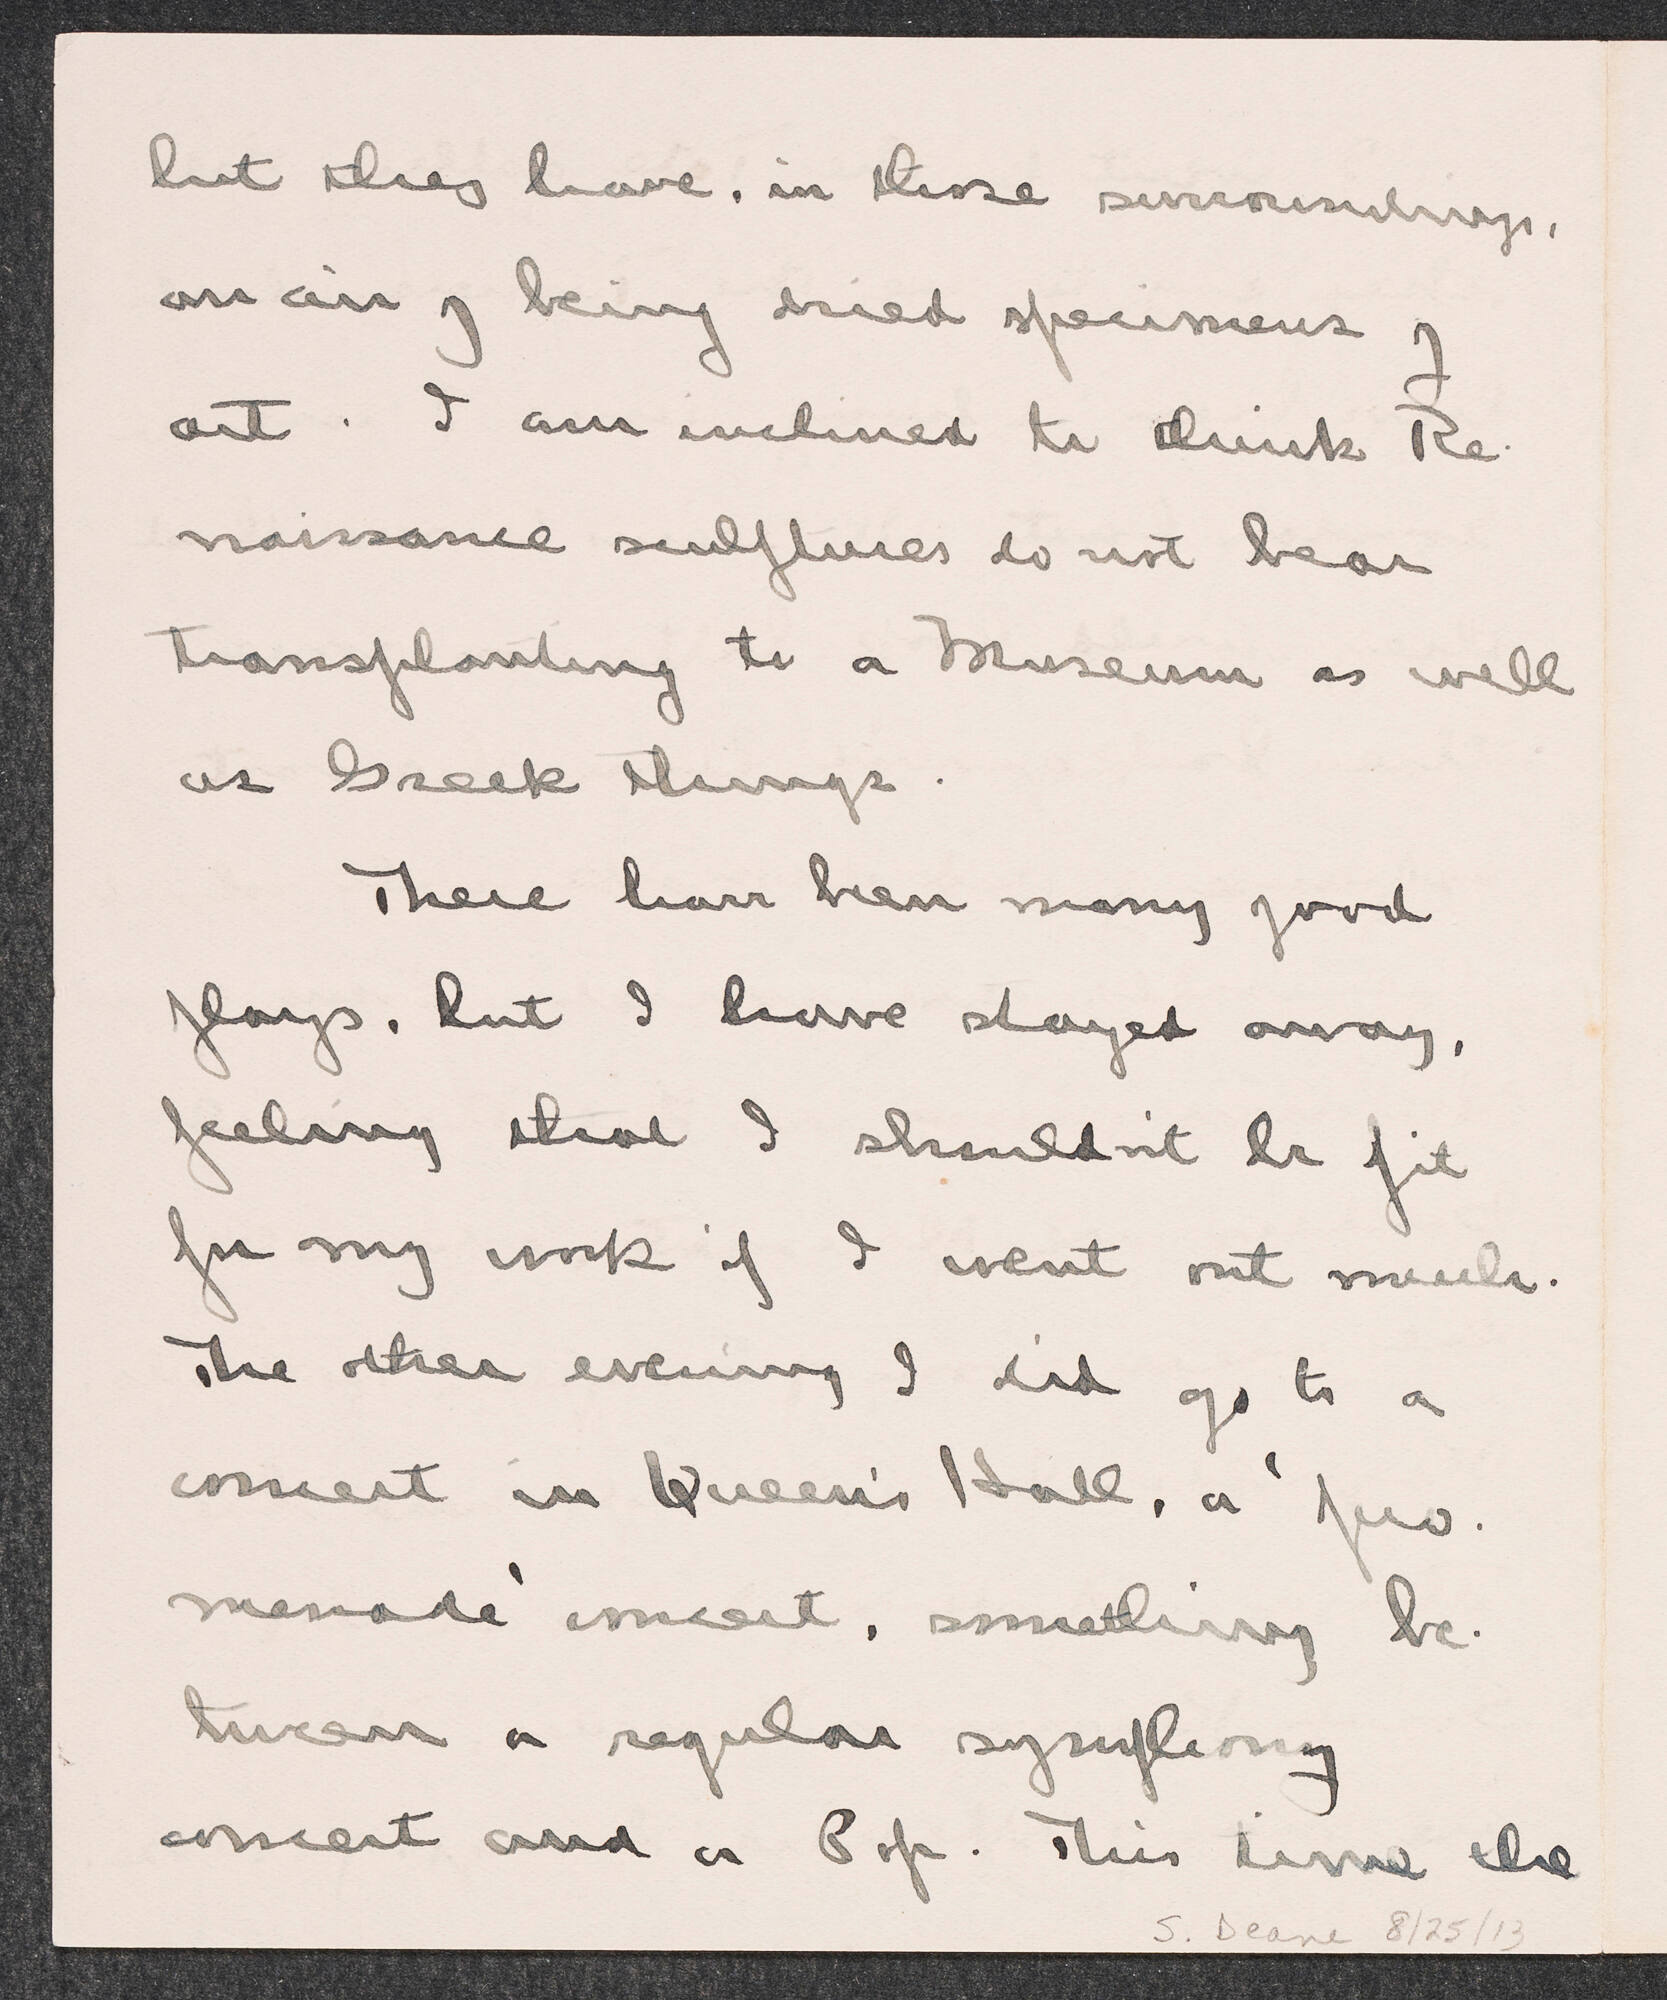 but they have, in those surroundings,
an air of being dried specimens of
art. I am inclined to think Re-
naissance sculptures do not bear
transplanting to a Museum as well
as Greek things.
There have been many good
plays, but I have stayed away,
feeling that I shouldn't be fit
for my work if I went out much.
The other evening I did go to a
concert in Queen's Hall, a 'pro-
menade' concert, something be-
tween a regular symphony
concert and a Pop. This time the
S. Deane 8/25/13